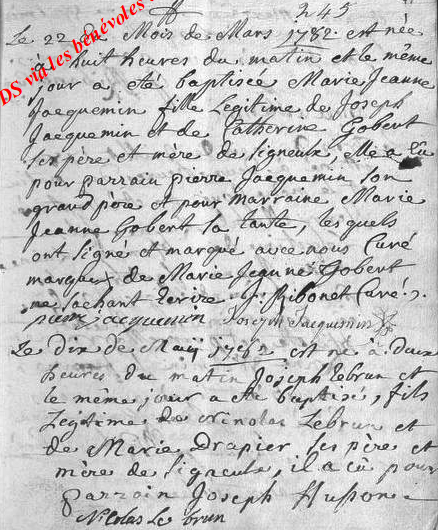 245
Le 22 du Mois de Mars 1782 est née
à huit heures du matin et le même
jour a été baptisée Marie Jeanne
Jacquemin fille Legitime de Joseph
Jacquemin et de Catherine Gobert
ses père et mère de signeulx, elle a eû
pour parrain pierre Jacquemin son
grand pere et pour marraine Marie
Jeanne Gobert sa tante, les quels
ont signé et marqué avec nous Curé
marque de Marie Jeanne Gobert
ne sachant écrire J. Ribonet Curé.
pierre jacquemin Joseph Jacquemin
Le dix de Maij 1782 est né à deux
heures du matin Joseph lebrun et
le même jour a été baptisé, fils
Legitime de Nicolas Lebrun et
de Marie Drapier ses père et
mère de signeulx, il a eû pour
parrain Joseph Husson
Nicolas Le brun
DS via les bénévoles